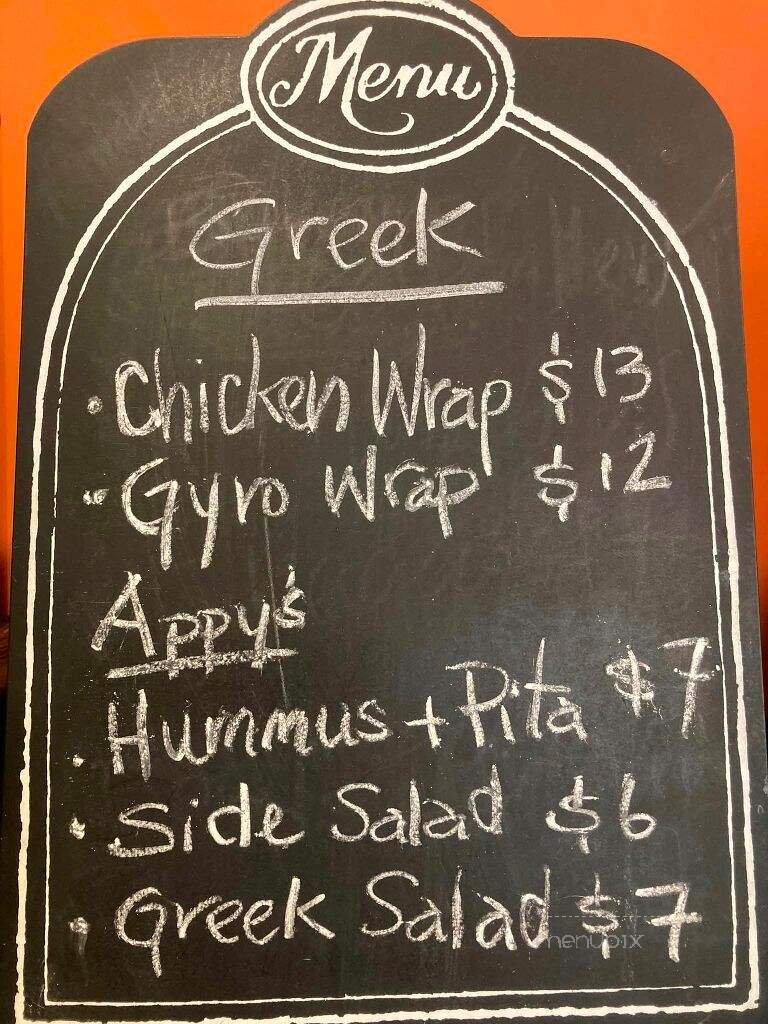 Menu
Greek
• Chicken Wrap $13
• Gyro Wrap $12
Appy's
• Hummus + Pita $7
• Side Salad $6
• Greek Salad $7
menupix